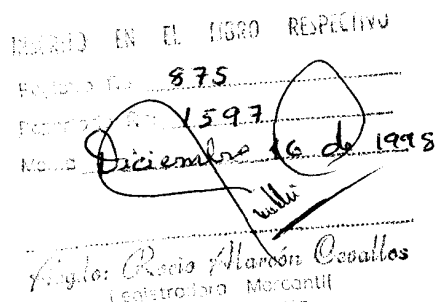 INSCRITO EN EL LIBRO RESPECTIVO
875
1597
Diciembre 16 de 1998
Rocío Alarcón Cevallos
Registradora Mercantil